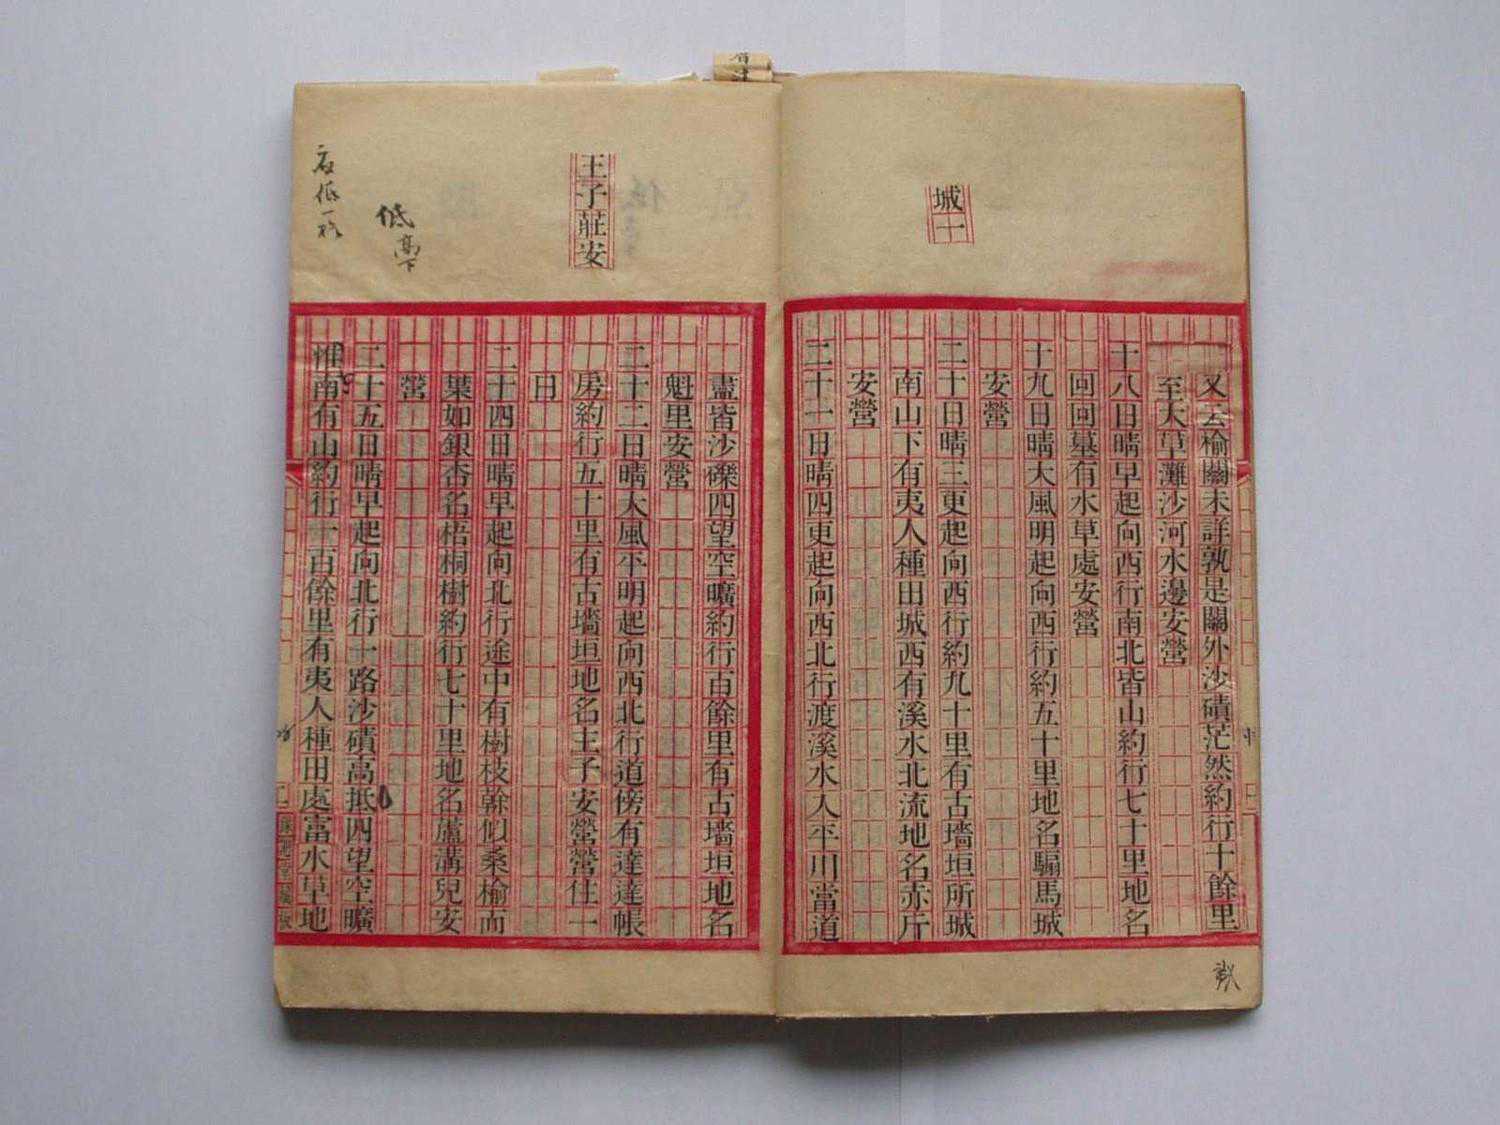 城一
又云榆關未詳孰是關外沙磧茫然約行十餘里
至大草灘沙河水邊安營
十八日晴早起向西行南北皆山約行七十里地名
回回墓有水草處安營
十九日晴大風明起向西行約五十里地名騸馬城
安營
二十日晴三更起向西行約九十里有古墻垣所城
南山下有夷人種田城西有溪水北流地名赤斤
安營
二十一日晴四更起向西北行渡溪水入平川當道
王子莊安
盡皆沙礫四望空曠約行百餘里有古墻垣地名
魁里安營
二十二日晴大風平明起向西北行道傍有達達帳
房約行五十里有古墻垣地名王子安營營住一
日
二十四日晴早起向北行途中有樹枝幹似桑榆而
葉如銀杏名梧桐樹約行七十里地名蘆溝兒安
營
二十五日晴早起向北行一路沙磧高抵四望空曠
惟南有山約行一百餘里有夷人種田處富水草地
低高下
應低一格